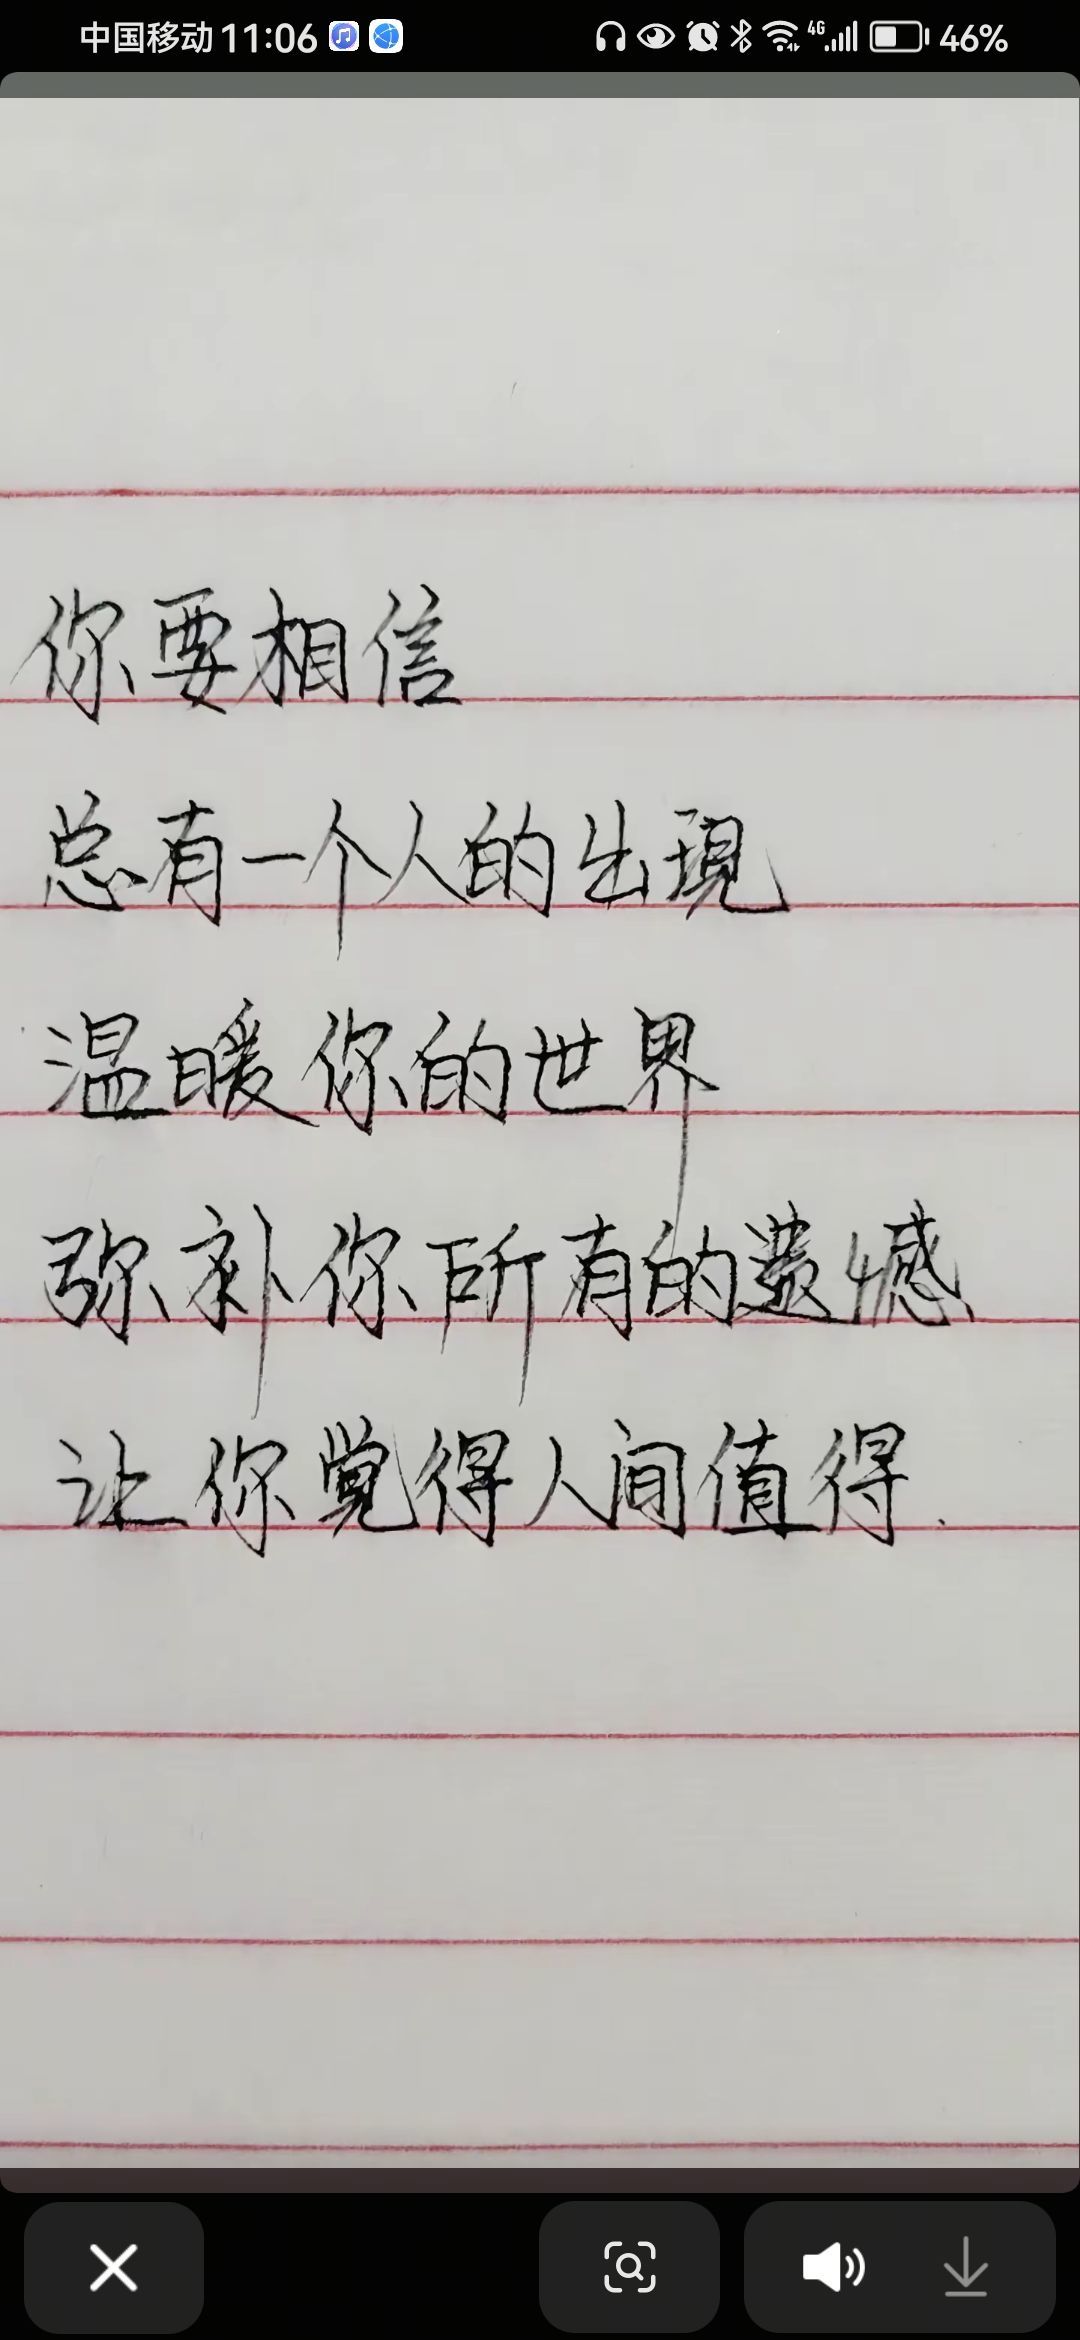 中国移动 11:06 4G 46%
你要相信
总有一个人的出现
温暖你的世界
弥补你所有的遗憾
让你觉得人间值得.